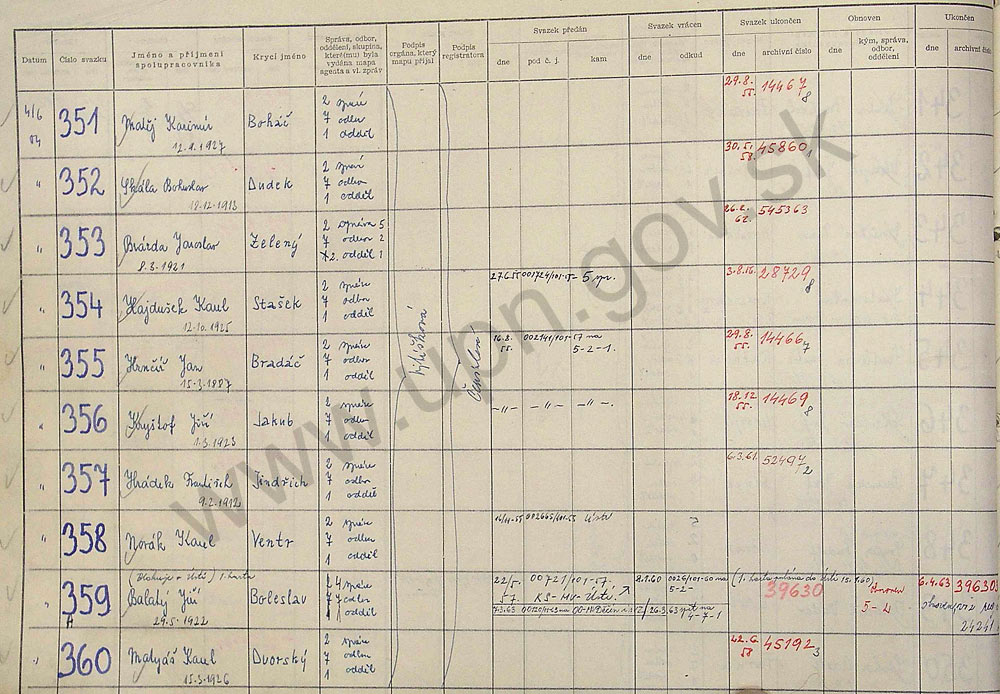 Datum
Číslo svazku
Jméno a příjmení
spolupracovníka
Krycí jméno
Správa, odbor,
oddělení, skupina,
které(mu) byla
vydána mapa
agenta a vl. zpráv
Podpis
orgána, který
mapu přijal
Podpis
registrátora
Svazek předán
dne
pod č. j.
kam
Svazek vrácen
dne
odkud
Svazek ukončen
dne
archivní číslo
Obnoven
dne
kým, správa,
odbor,
oddělení
Ukončen
dne
archivní číslo
4/6
54
351
Matěj Kazimír
12.9.1927
Boháč
2 správ
7 odbor
1 odděl
29.8.
55.
14467
8
"
352
Skála Bohuslav
18.12.1913
Dudek
2 správ
7 odbor
1 odděl
30.5.
58.
45860
"
353
Brázda Jaroslav
8.3.1921
Zelený
2 správa 5
7 odbor 2
2. odděl 1
26.2.
62.
545363
"
354
Hajdušek Karel
12.10.1925
Stašek
2 správa
7 odbor
1 odděl
27.6.55
001724/101-55
5.spr.
28729
8
"
355
Jan
15.3.1887
Bradáč
2 správa
7 odbor
1 odděl
16.8.
55.
na
5-2-1.
29.8.
55.
14466
7
"
356
Kryštof Jiří
1.3.1923
Jakub
2 správa
7 odbor
1 odděl
-"- -"- -"-.
18.12
55.
14469
8
"
357
Hrádek František
9.2.1912
Jindřich
2 správa
7 odbor
1 odděl
6.3.61.
52497
2
"
358
Novák Karel
Ventr
2 správa
7 odbor
1 odděl
"
359
Balatý Jiří
29.5.1922
Boleslav
správa
odbor
odděl
22/5.
57.
00721/101-57.
KS-MV-Ústí.
8.1.60
0026/101-60 na
5-2-
39630
Obnoven
5-2
6.4.63
39630
"
360
Matyáš Karel
15.3.1926
Dvorský
2 správa
7 odbor
1 odděl
58
45192
3
www.upn.gov.sk